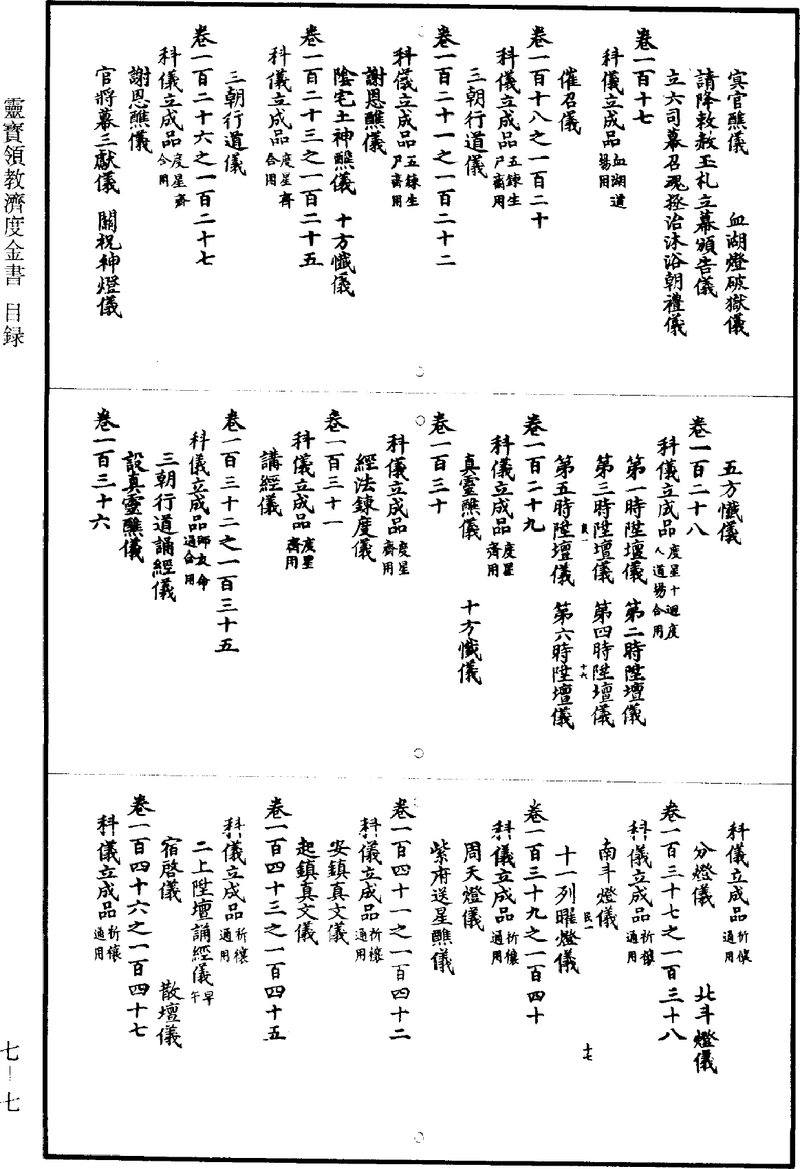 冥官醮儀　血湖燈破獄儀
請降敕赦玉札立幕頒告儀
立六司幕召魂拯治沐浴朝禮儀
卷一百十七
科儀立成品血湖道場用
催召儀
卷一百十八之一百二十
科儀立成品五鍊生尸齋用
三朝行道儀
卷一百二十一之一百二十二
科儀立成品五鍊生尸齋用
謝恩醮儀
陰宅土神醮儀　十方懺儀
卷一百二十三之一百二十五
科儀立成品度星齋合用
三朝行道儀
卷一百二十六之一百二十七
科儀立成品度星齋合用
謝恩醮儀
官將幕三獻儀　關祝神燈儀
五方懺儀
卷一百二十八
科儀立成品度星十迴度人道場合用
第一時陞壇儀　第二時陞壇儀
第三時陞壇儀　第四時陞壇儀
民一
十六
第五時陞壇儀　第六時陞壇儀
卷一百二十九
科儀立成品度星齋用
真靈醮儀　十方懺儀
卷一百三十
科儀立成品度星齋用
經法鍊度儀
卷一百三十一
科儀立成品度星齋用
講經儀
卷一百三十二之一百三十五
科儀立成品師友命過合用
三朝行道誦經儀
設真靈醮儀
卷一百三十六
科儀立成品祈禳通用
分燈儀　北斗燈儀
卷一百三十七之一百三十八
科儀立成品祈禳通用
南斗燈儀
民一
十七
十一列曜燈儀
卷一百三十九之一百四十
科儀立成品祈禳通用
周天燈儀
紫府送星醮儀
卷一百四十一之一百四十二
科儀立成品祈禳通用
安鎮真文儀
起鎮真文儀
卷一百四十三之一百四十五
科儀立成品祈禳通用
二上陞壇誦經儀早午
宿啓儀　散壇儀
卷一百四十六之一百四十七
科儀立成品祈禳通用
靈寶領教濟度金書　目録
七—七